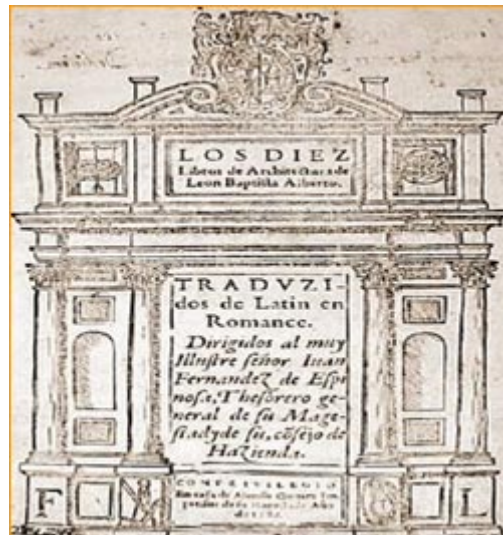 LOS DIEZ
Libros de Architectura de
Leon Baptista Alberto.
TRADVZI-
dos de Latin en
Romance.
Dirigidos al muy
Illustre señor Iuan
Fernandez de Espi
nosa, Thesorero ge-
neral de su Mage-
stad, y de su, cõsejo de
Hazienda.
CON PRIVILEGIO
En casa de Alonso Gomez
F L